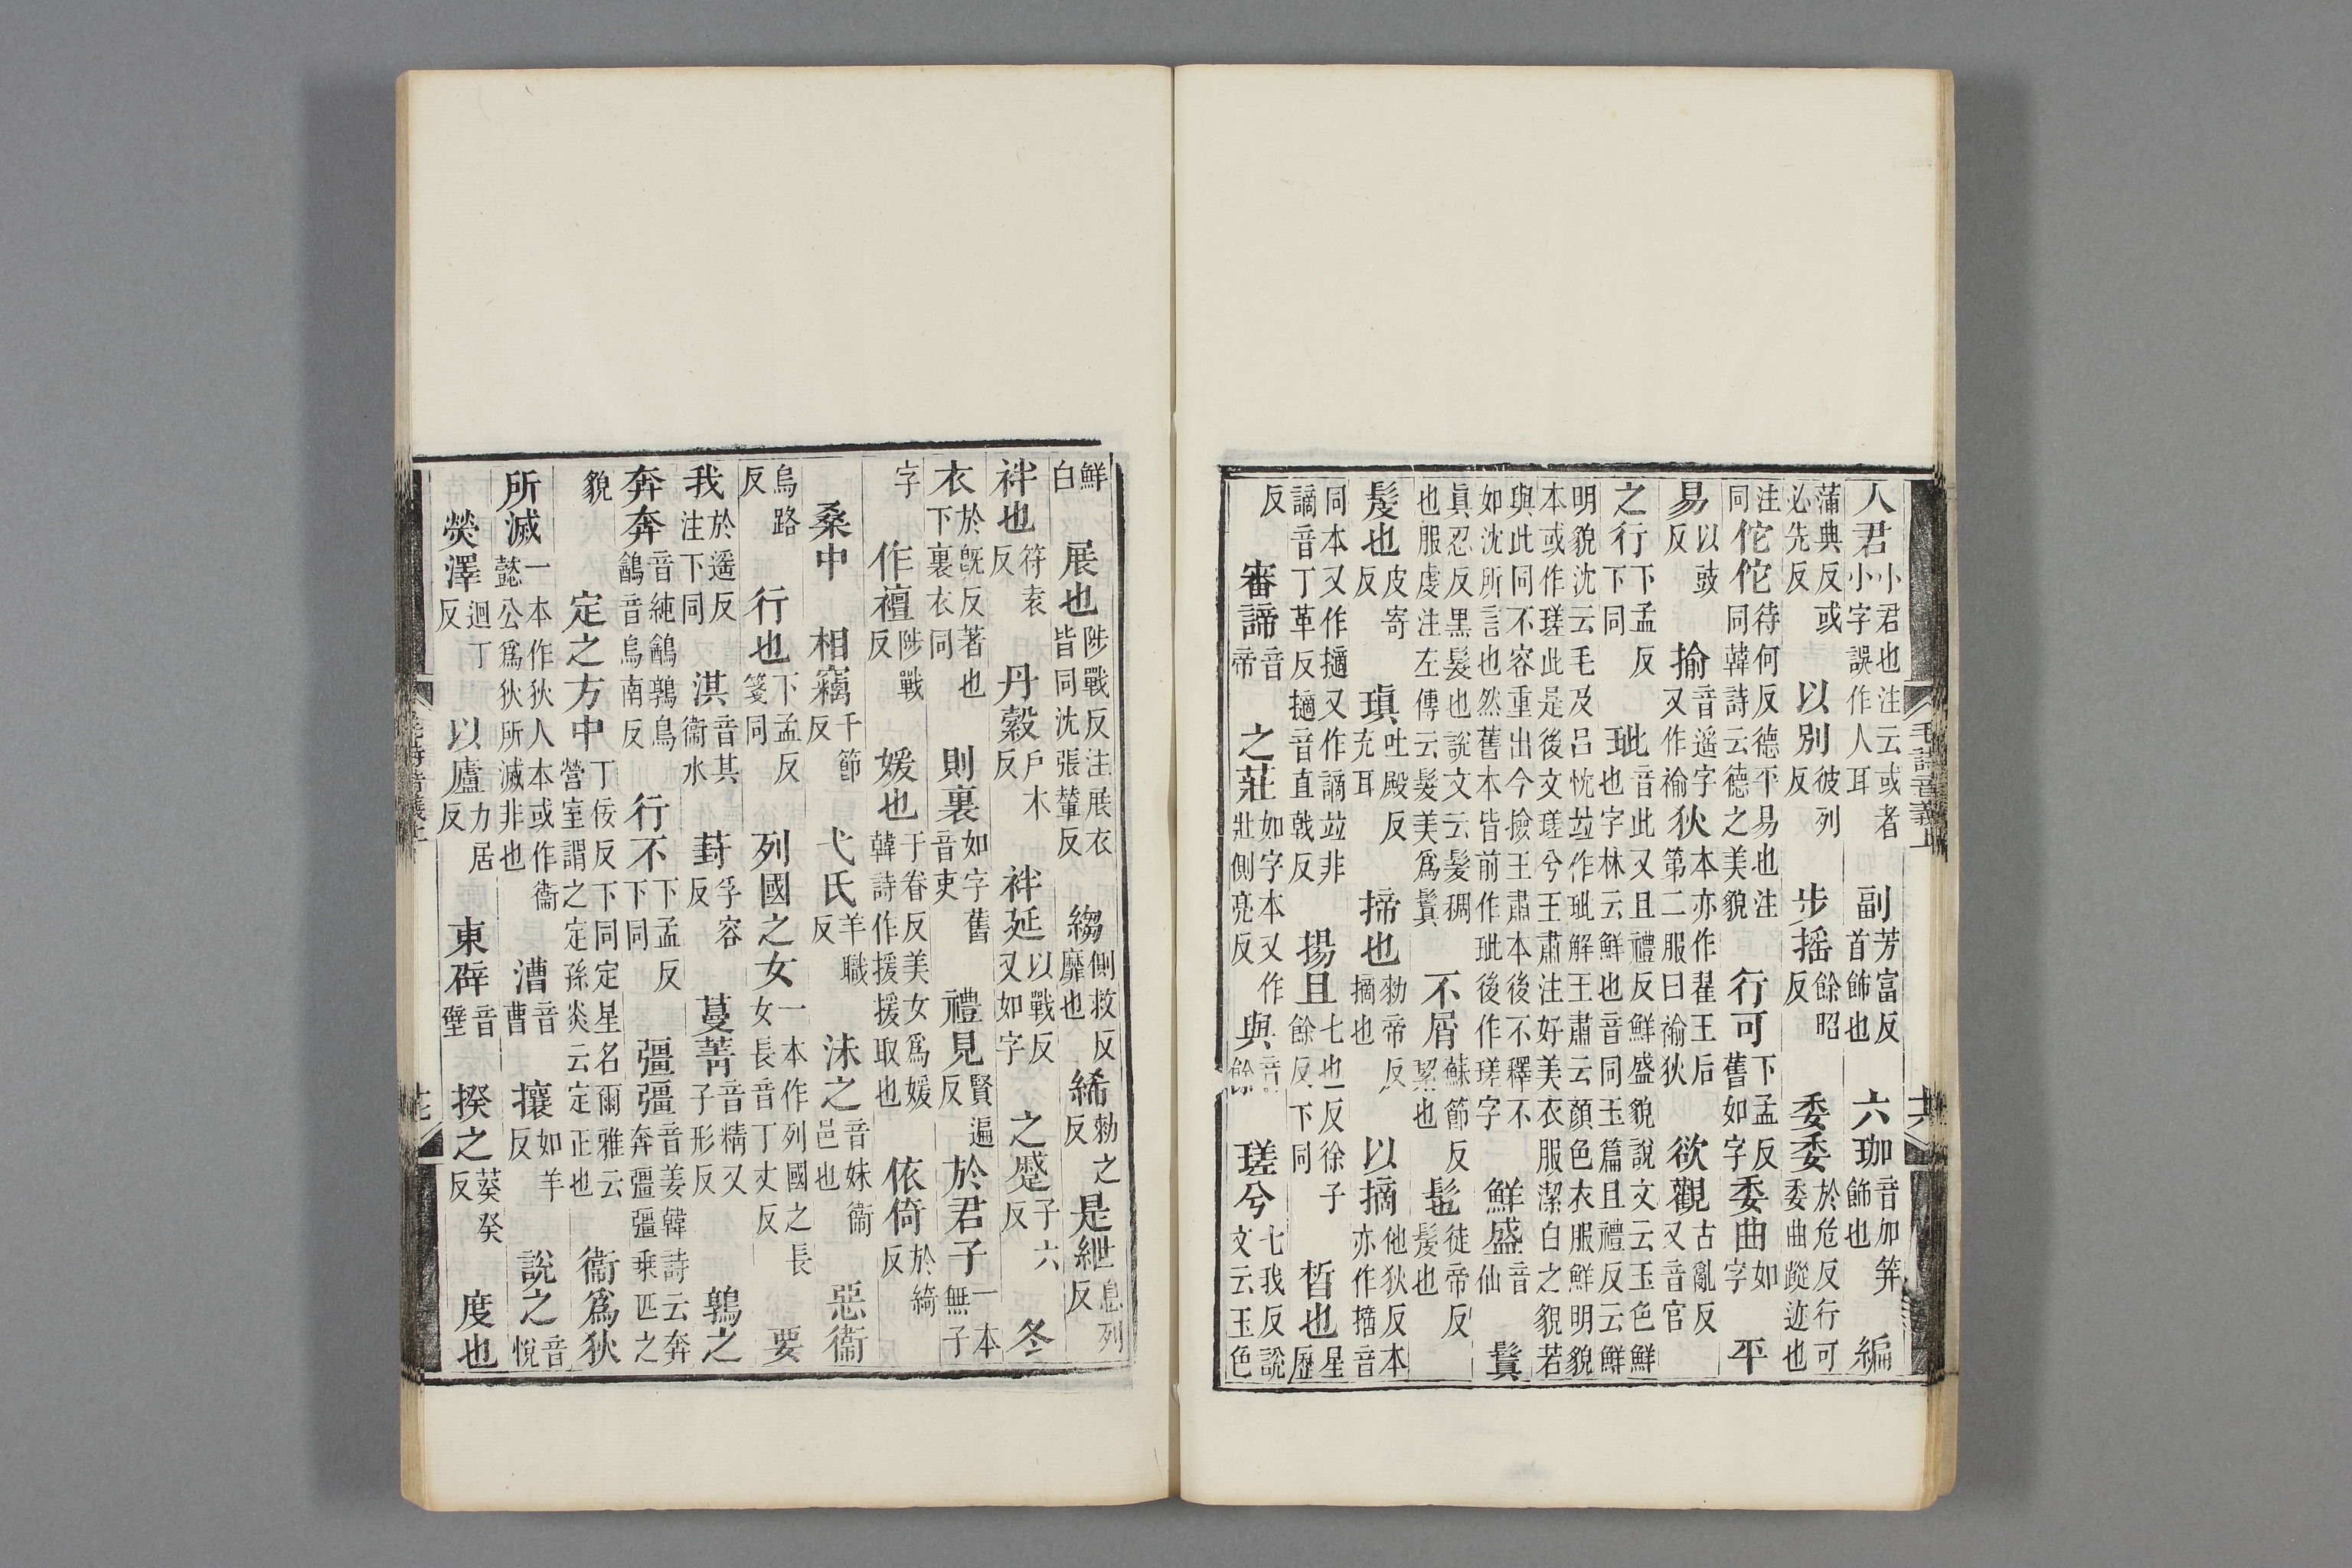 人君小君也注云或者小字誤作人人耳 副芳富反首飾也 六珈音加笄飾也 編
蒲典反或必先反 以別彼列反 步搖餘昭反 委委於危反行可委曲蹤迹也
注同 佗佗待何反德平易也注同韓詩云德之美貌 行可下孟反舊如字 委曲如字 平
易以豉反 揄音遥字又作褕 狄本亦作翟王后第二服曰褕狄 欲觀古亂反又音官
之行下孟反下同 玼音此又且禮反鮮盛貌說文云玉色鮮也字林云鮮也音同玉篇且禮反云鮮
明貌沈云毛及呂忱竝作玼解王肅云顏色衣服鮮明貌本或作瑳此是後文瑳兮王肅注好美衣服潔白之貌若
與此同不容重出今撿王肅本後不釋不如沈所言也然舊本皆前作玼後作瑳字 鮮盛音仙 鬒
眞忍反黑髮也說文云髮稠也服虔注左傳云髮美爲鬒 不屑蘇節反絜也 髢徒帝反髲也
髲也皮寄反 瑱吐殿反充耳 揥也勑帝反摘也 以摘他狄反本亦作擿音
同本又作擿又作謫竝非謫音丁革反擿音直戟反 揚且七也反徐子餘反下同 晳也星歷
反 審諦音帝 之莊如字本又作壯側亮反 與音餘 瑳兮七我反說文云玉色
鮮白 展也陟戰反注展衣皆同沈張輦反 縐側救反靡也 絺勑之反 是紲息列反
袢也符袁反 丹縠戶木反 袢延以戰反又如字 之蹙子六反 冬
衣於旣反著也下裏衣同 則裏如字舊音吏 禮見賢遍反 於君子一本無子
字 作襢陟戰反 媛也于眷反美女爲媛韓詩作援援取也 依倚於綺反
桑中 相竊千節反 弋氏羊職反 沬之音妹衞邑也 惡衞
烏路反 行也下孟反箋同 列國之女一本作列國之長女長音丁丈反 要
我於遥反注下同 淇音其衞水 葑孚容反 蔓菁音精又子形反 鶉之
奔奔音純鶉鶉鳥鶉音烏南反 行不下孟反下同 彊彊音姜韓詩云奔奔彊彊乘匹之
貌 定之方中丁佞反下同定星名爾雅云營室謂之定孫炎云定正也 衞爲狄
所滅一本作狄人本或作衞懿公爲狄所滅非也 漕音曹 攘如羊反 說之音悅
熒澤迥丁反 以廬力居反 東辟音壁 揆之葵癸反 度也
毛詩音義上